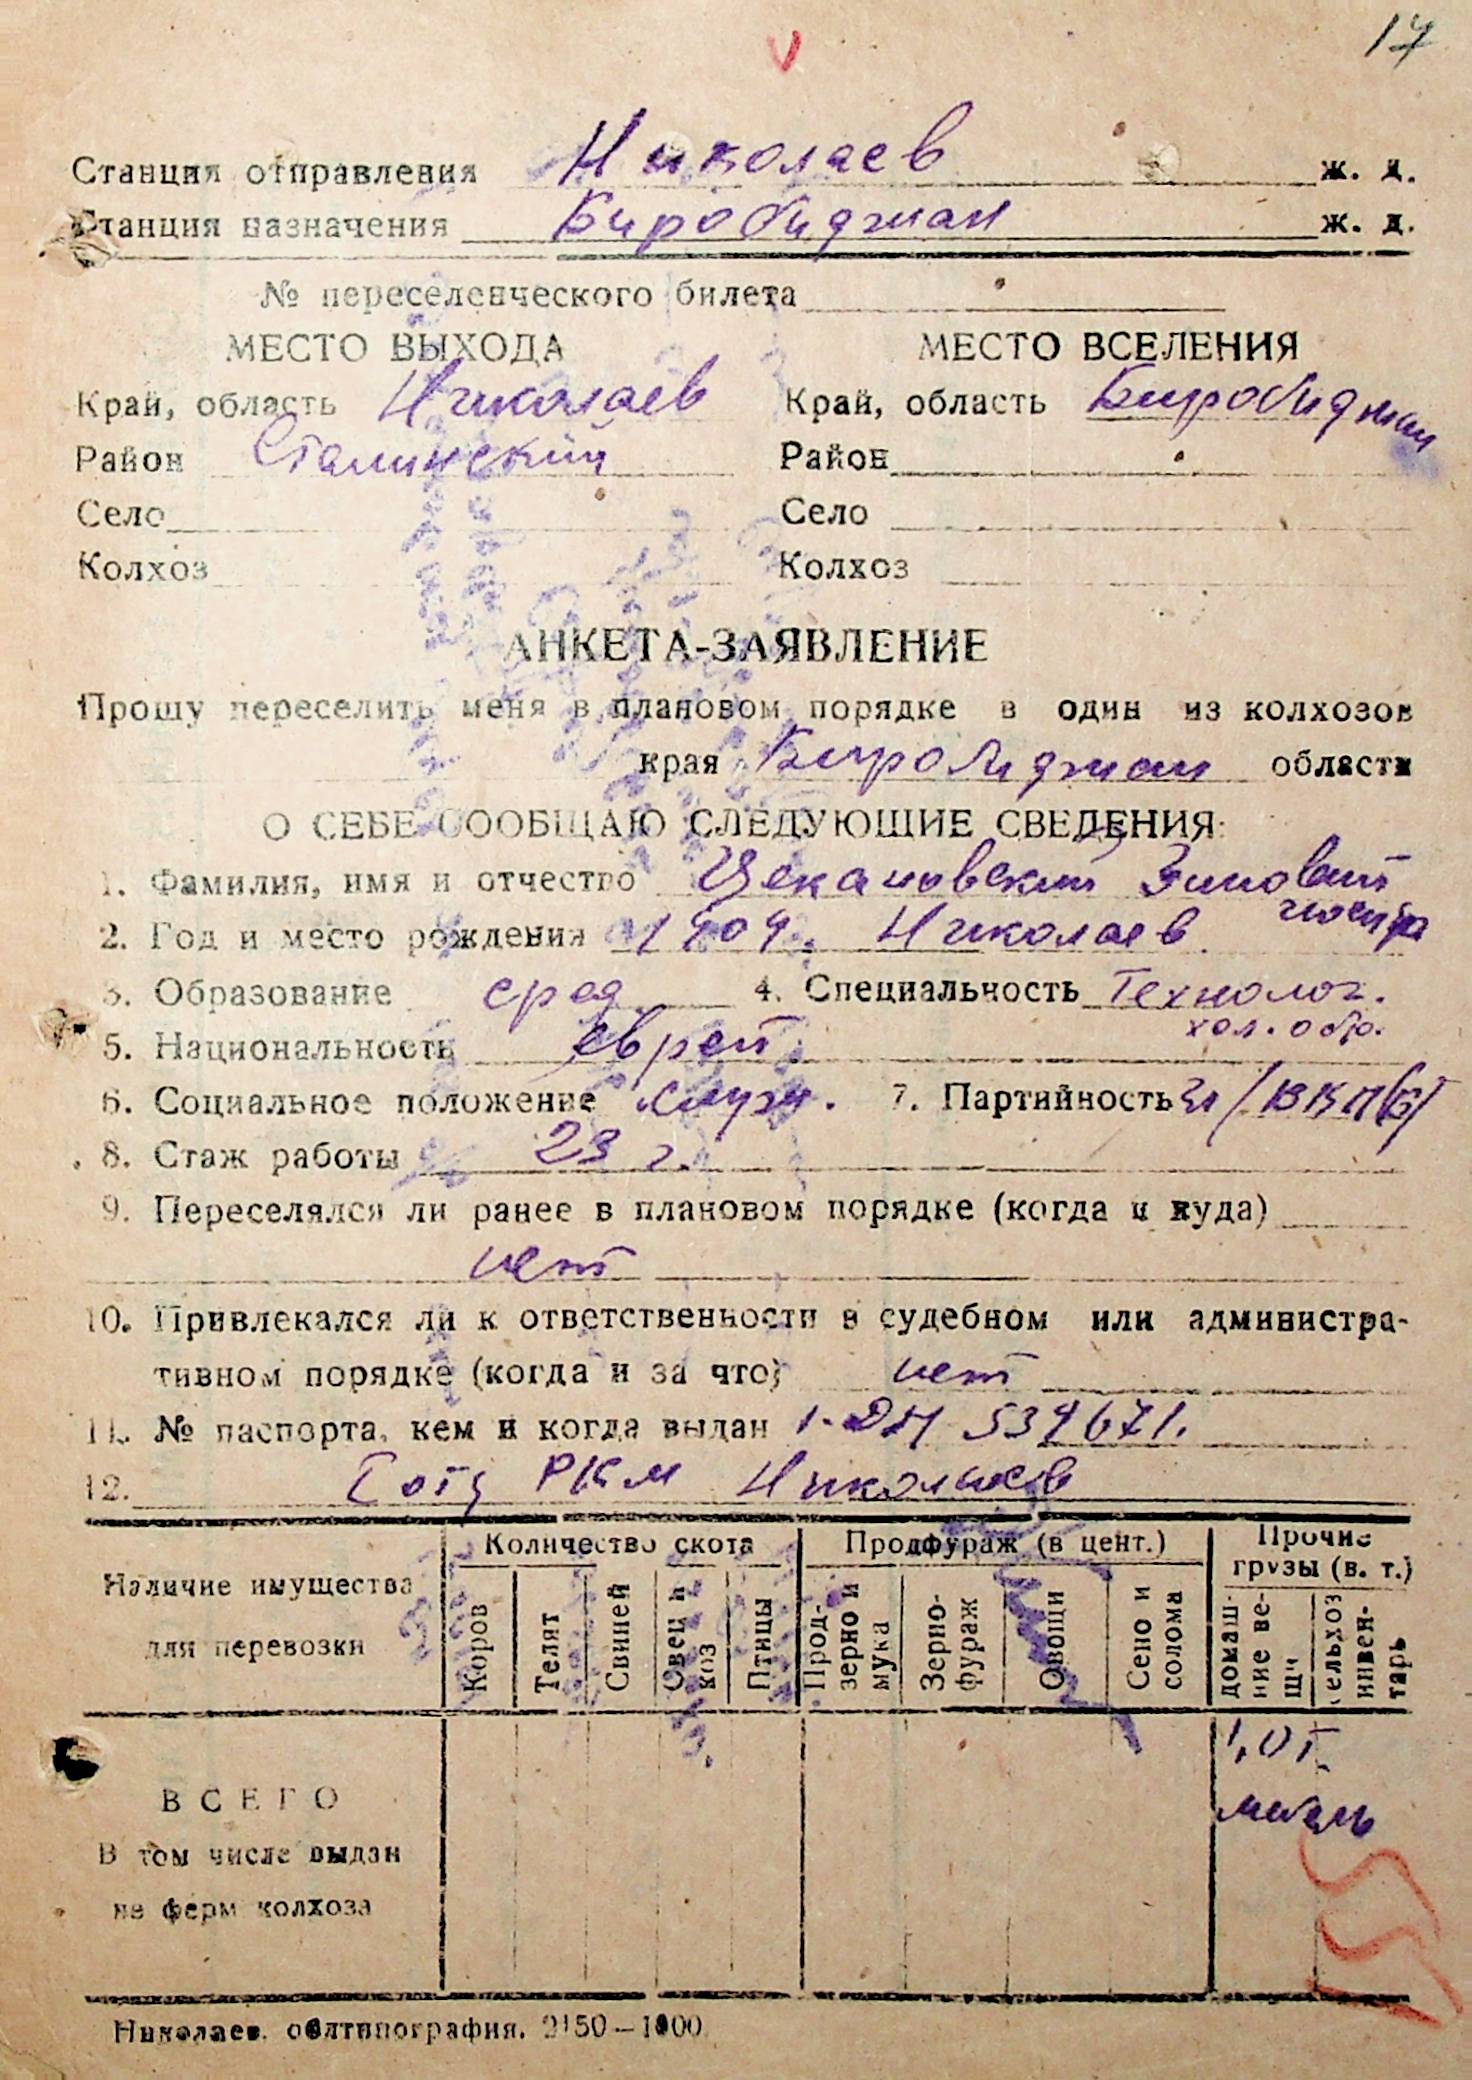 17
Станция отправления Николаев ж. д.
Станция назначения Биробиджан ж. д.
№ переселенческого билета
МЕСТО ВЫХОДА
Край, область Николаев
Район Сталинский
Село
Колхоз
МЕСТО ВСЕЛЕНИЯ
Край, область Биробиджан
Район
Село
Колхоз
АНКЕТА-ЗАЯВЛЕНИЕ
Прошу переселить меня в плановом порядке в один из колхозов
края Биробиджан области
О СЕБЕ СООБЩАЮ СЛЕДУЮЩИЕ СВЕДЕНИЯ:
1. Фамилия, имя и отчество Цекановский Зиновий
2. Год и место рождения 1909. Николаев
3. Образование сред 4. Специальность Технолог.
хол. обр.
5. Национальность еврей
6. Социальное положение служ. 7. Партийность чл/ВКП(б)
8. Стаж работы 23 г.
9. Переселялся ли ранее в плановом порядке (когда и куда)
нет
10. Привлекался ли к ответственности в судебном или администра-
тивном порядке (когда и за что) нет
11. № паспорта, кем и когда выдан 539671.
12. РКМ Николаев
Наличие имущества
для перевозки
Количество скота
Коров
Телят
Свиней
Овец и
коз
Птицы
Продфураж (в цент.)
Прод-
зерно и
мука
Зерно-
фураж
Овощи
Сено и
солома
Прочие
грузы (в. т.)
домаш-
ние ве-
щи
сельхоз
инвен-
тарь
ВСЕГО
В том числе выдан
не ферм колхоза
1,0 т.
мебель
Николаев. облтипография. 2150—1000